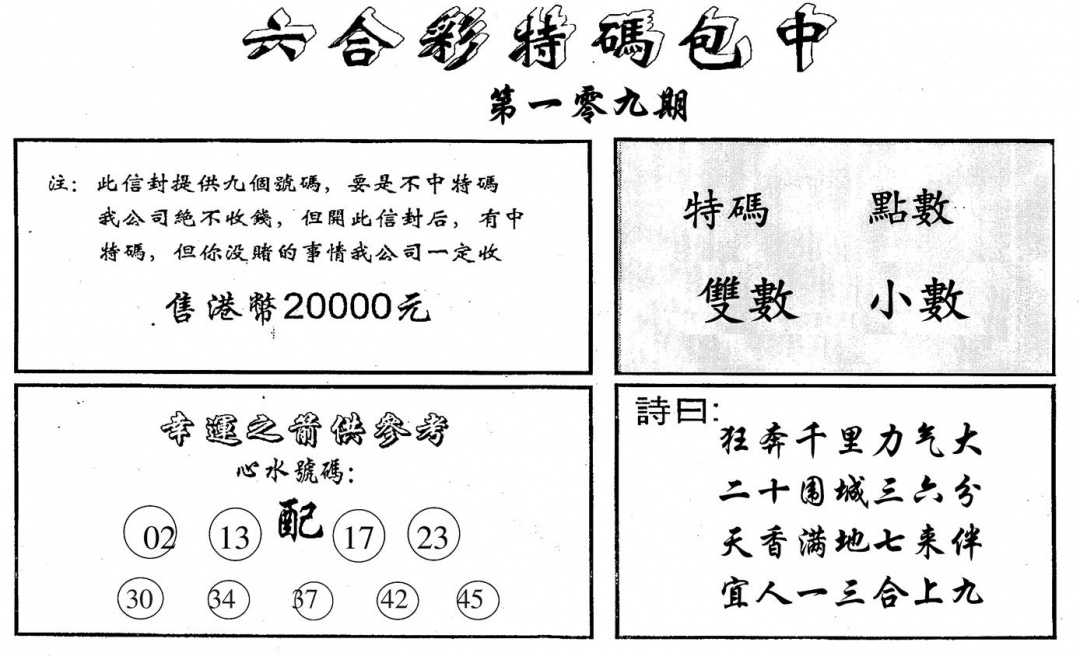 六合彩特碼包中
第一零九期
注：此信封提供九個號碼，要是不中特碼
我公司絕不收錢，但開此信封后，有中
特碼，但你没賭的事情我公司一定收
售港幣20000元
特碼 點數
雙數 小數
幸運之箭供參考
心水號碼：
配
02 13 17 23
30 34 37 42 45
詩曰：
狂奔千里力气大
二十围城三六分
天香满地七来伴
宜人一三合上九